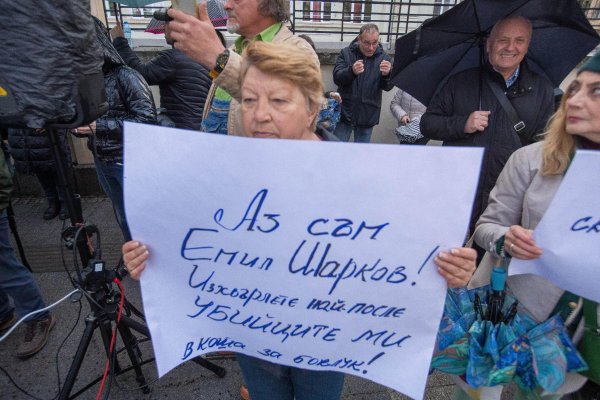 Аз съм
Емил Шарков!
Изхвърлете най-после
УБИЙЦИТЕ МИ
в коша за боклук!